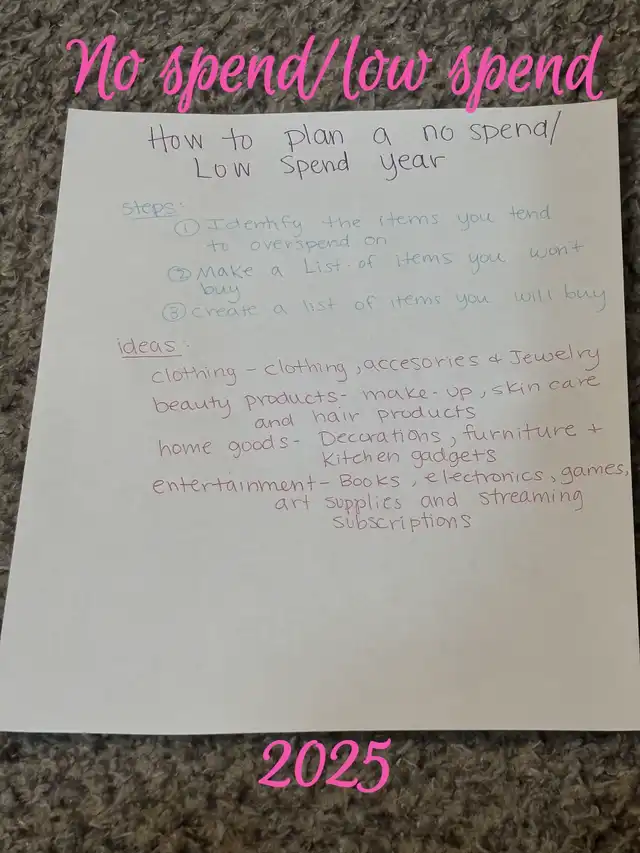 No spend/low spend
How to plan a no spend/
Low spend year
Steps:
① Identify the items you tend
to overspend on
② Make a List of items you won't
buy
③ create a list of items you will buy
ideas:
clothing - clothing, accesories & Jewelry
beauty products - make-up, skin care
and hair products
home goods - Decorations, furniture +
kitchen gadgets
entertainment - Books, electronics, games,
art supplies and streaming
subscriptions
2025